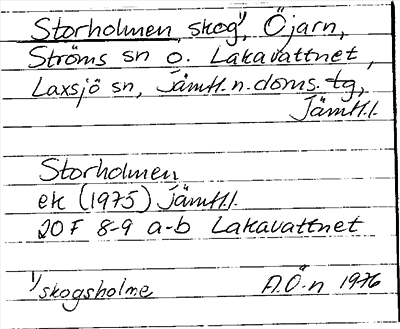 Storholmen, skog¹⁾, Öjarn,
Ströms sn o. Lakavattnet,
Laxsjö sn, Jämtl. n. doms. tg,
Jämtl.l.
Storholmen
ek (1975) Jämtl.l.
20F 8-9 a-b Lakavattnet
¹⁾ skogsholme A.Ö-n 1976